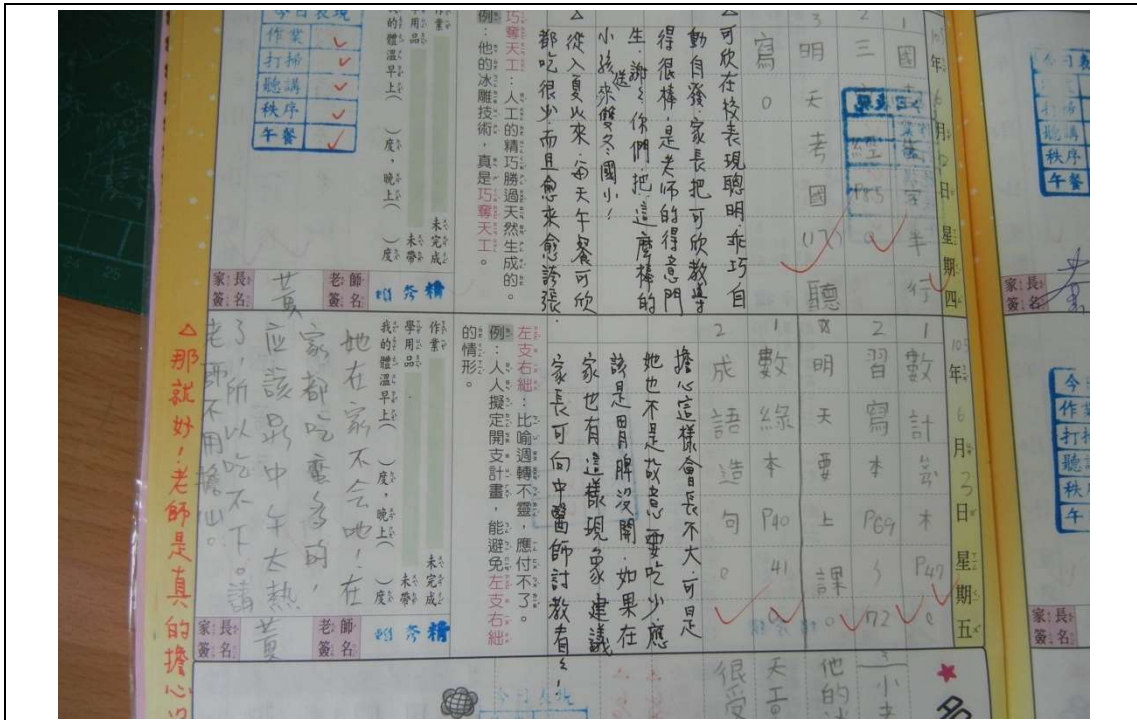 105年6月2日星期四
1國
半行
2三
經P85。
3明天考國(17)聽
寫。
△可欣在校表現聰明乖巧自
動自發.家長把可欣教導
得很棒,是老師的得意門
生.謝謝你們把這麼棒的
小孩送來雙冬國小!
△從入夏以來.每天午餐可欣
都吃很少.而且愈來愈誇張.
巧奪天工:人工的精巧勝過天然生成的。
例:他的冰雕技術,真是巧奪天工。
作業
未完成
學用品
未帶
我的體溫早上( )度,晚上( )度
今日表現
作業
打掃
聽講
秩序
午餐
老師簽名
家長簽名
黃
105年6月3日星期五
1數計算本P47。
2習寫本P69、72。
明天要上課。
1數綠本P40、41
2成語造句。
擔心這樣會長不大.可是
她也不是故意要吃少應
該是胃脾沒開.如果在
家也有這樣現象.建議
家長可向中醫師討教看看!
左支右絀:比喻週轉不靈,應付不了。
例:人人擬定開支計畫,能避免左支右絀
的情形。
作業
未完成
學用品
未帶
我的體溫早上( )度,晚上( )度
她在家不会吔!在
家都吃蠻多的,
应該是中午太熱
了,所以吃不下。請
老師不用擔心。
老師簽名
家長簽名
黃
△那就好!老師是真的擔心
今日表現
很受
天工
他的
小
秩序
午餐
家長簽名
作業
打掃
聽講
家長簽名